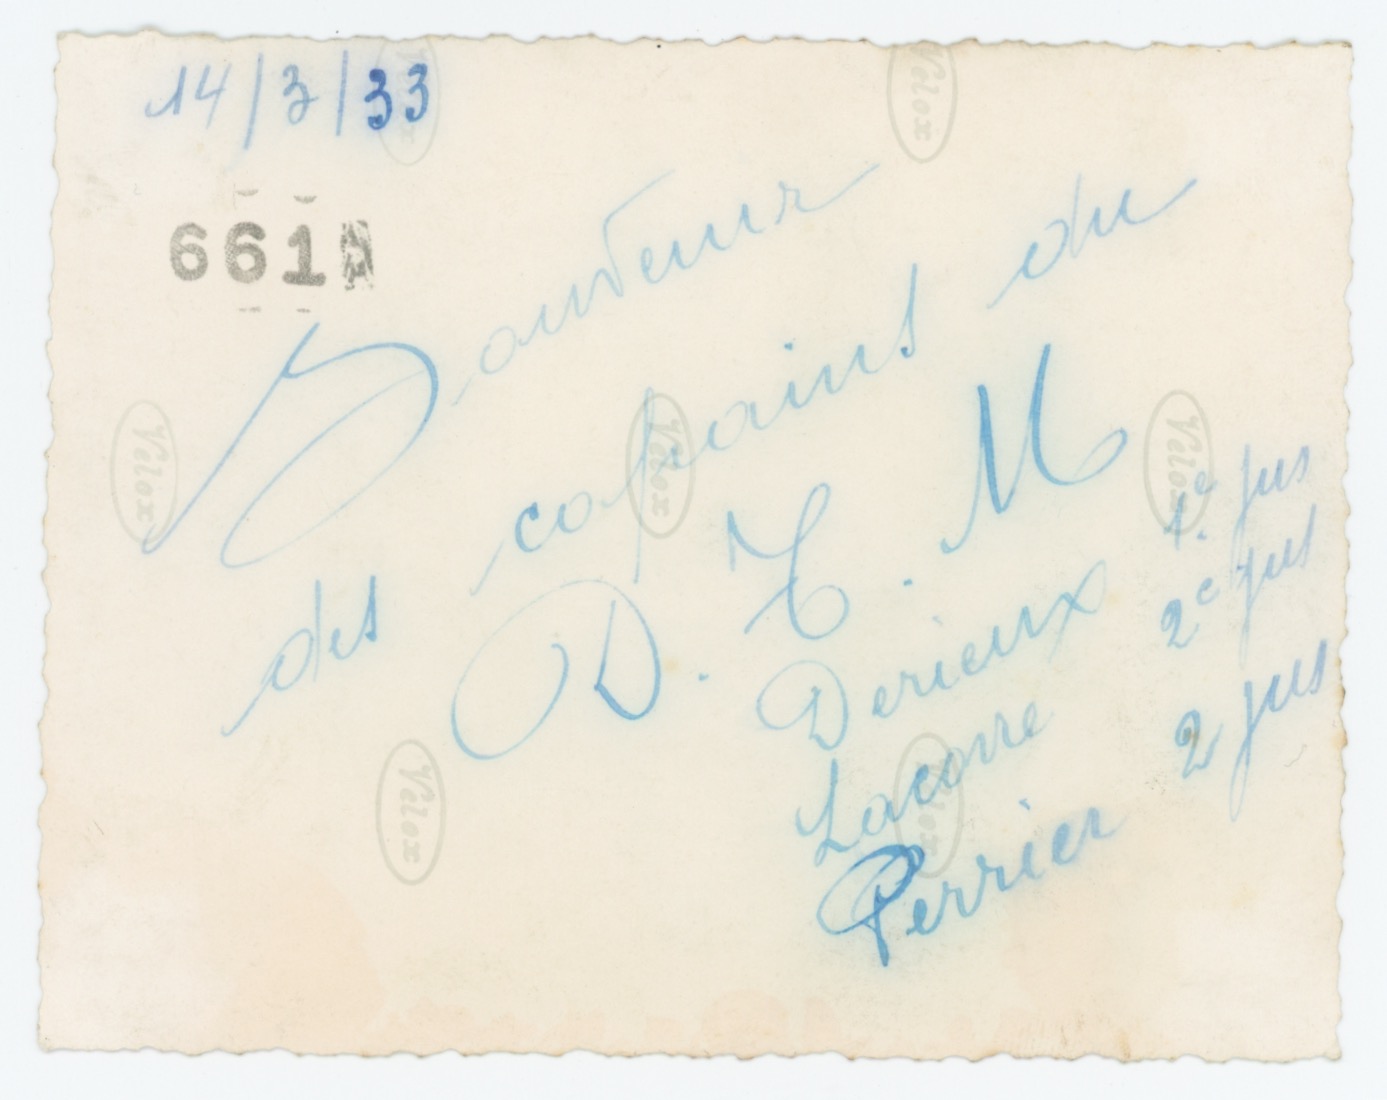 14/3/33
661
Souvenir
des copains du
D. C. M
Derieux 1e jus
Lacorre 2e jus
Perrier 2 jus
Velox
Velox
Velox
Velox
Velox
Velox
Velox